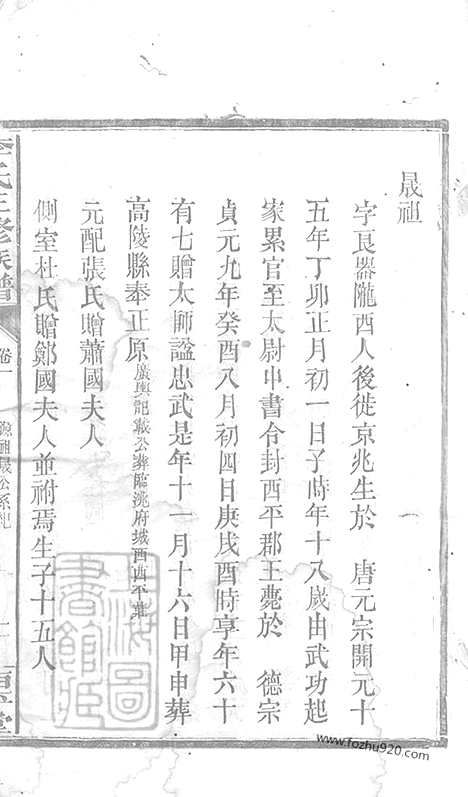 晟祖
字良器隴西人後徙京兆生於　唐元宗開元十
五年丁卯正月初一日子時年十八歲由武功起
家累官至太尉中書令封西平郡王薨於　德宗
貞元九年癸酉八月初四日庚戌酉時享年六十
有七贈太師謚忠武是年十一月十六日甲申葬
高陵縣奉正原廣輿記載公葬臨洮府城西西平庄
元配張氏贈蕭國夫人
側室杜氏贈鄭國夫人並祔焉生子十五人
李氏三修族譜
卷一
上海圖書館藏
www.fozhu920.com